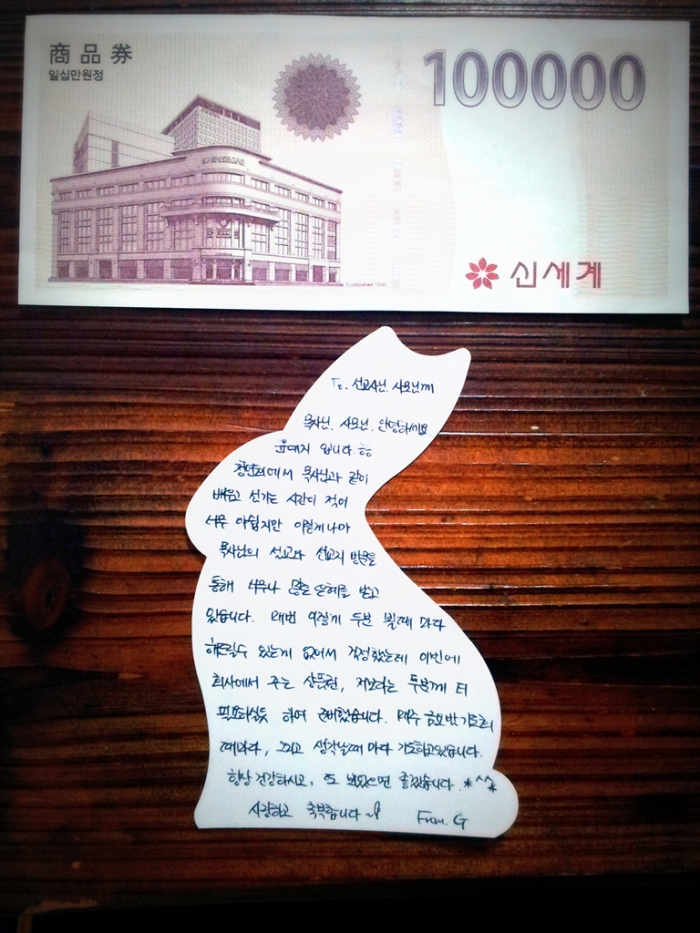 商品券
일십만원정
100000
Established 1930
신세계
To. 선교사님. 사모님께
목사님. 사모님. 안녕하세요
입니다 ㅎㅎ
청년회에서 목사님과 같이
배우고 섬기는 시간이 적어
너무 아쉽지만 이렇게나마
목사님의 설교와 선교지 방문을
통해 너무나 많은 은혜를 받고
있습니다. 매번 이렇게 두분 뵐때 마다
해드릴수 있는게 없어서 걱정했는데 이번에
회사에서 주는 상품권, 저보다는 두분께 더
필요하실듯 하여 준비했습니다. 매주 금요밤기도회
때마다, 그리고 생각날때 마다 기도하고있습니다.
항상 건강하시고, 또 뵈었으면 좋겠습니다. *^^*
사랑하고 축복합니다~! From. G